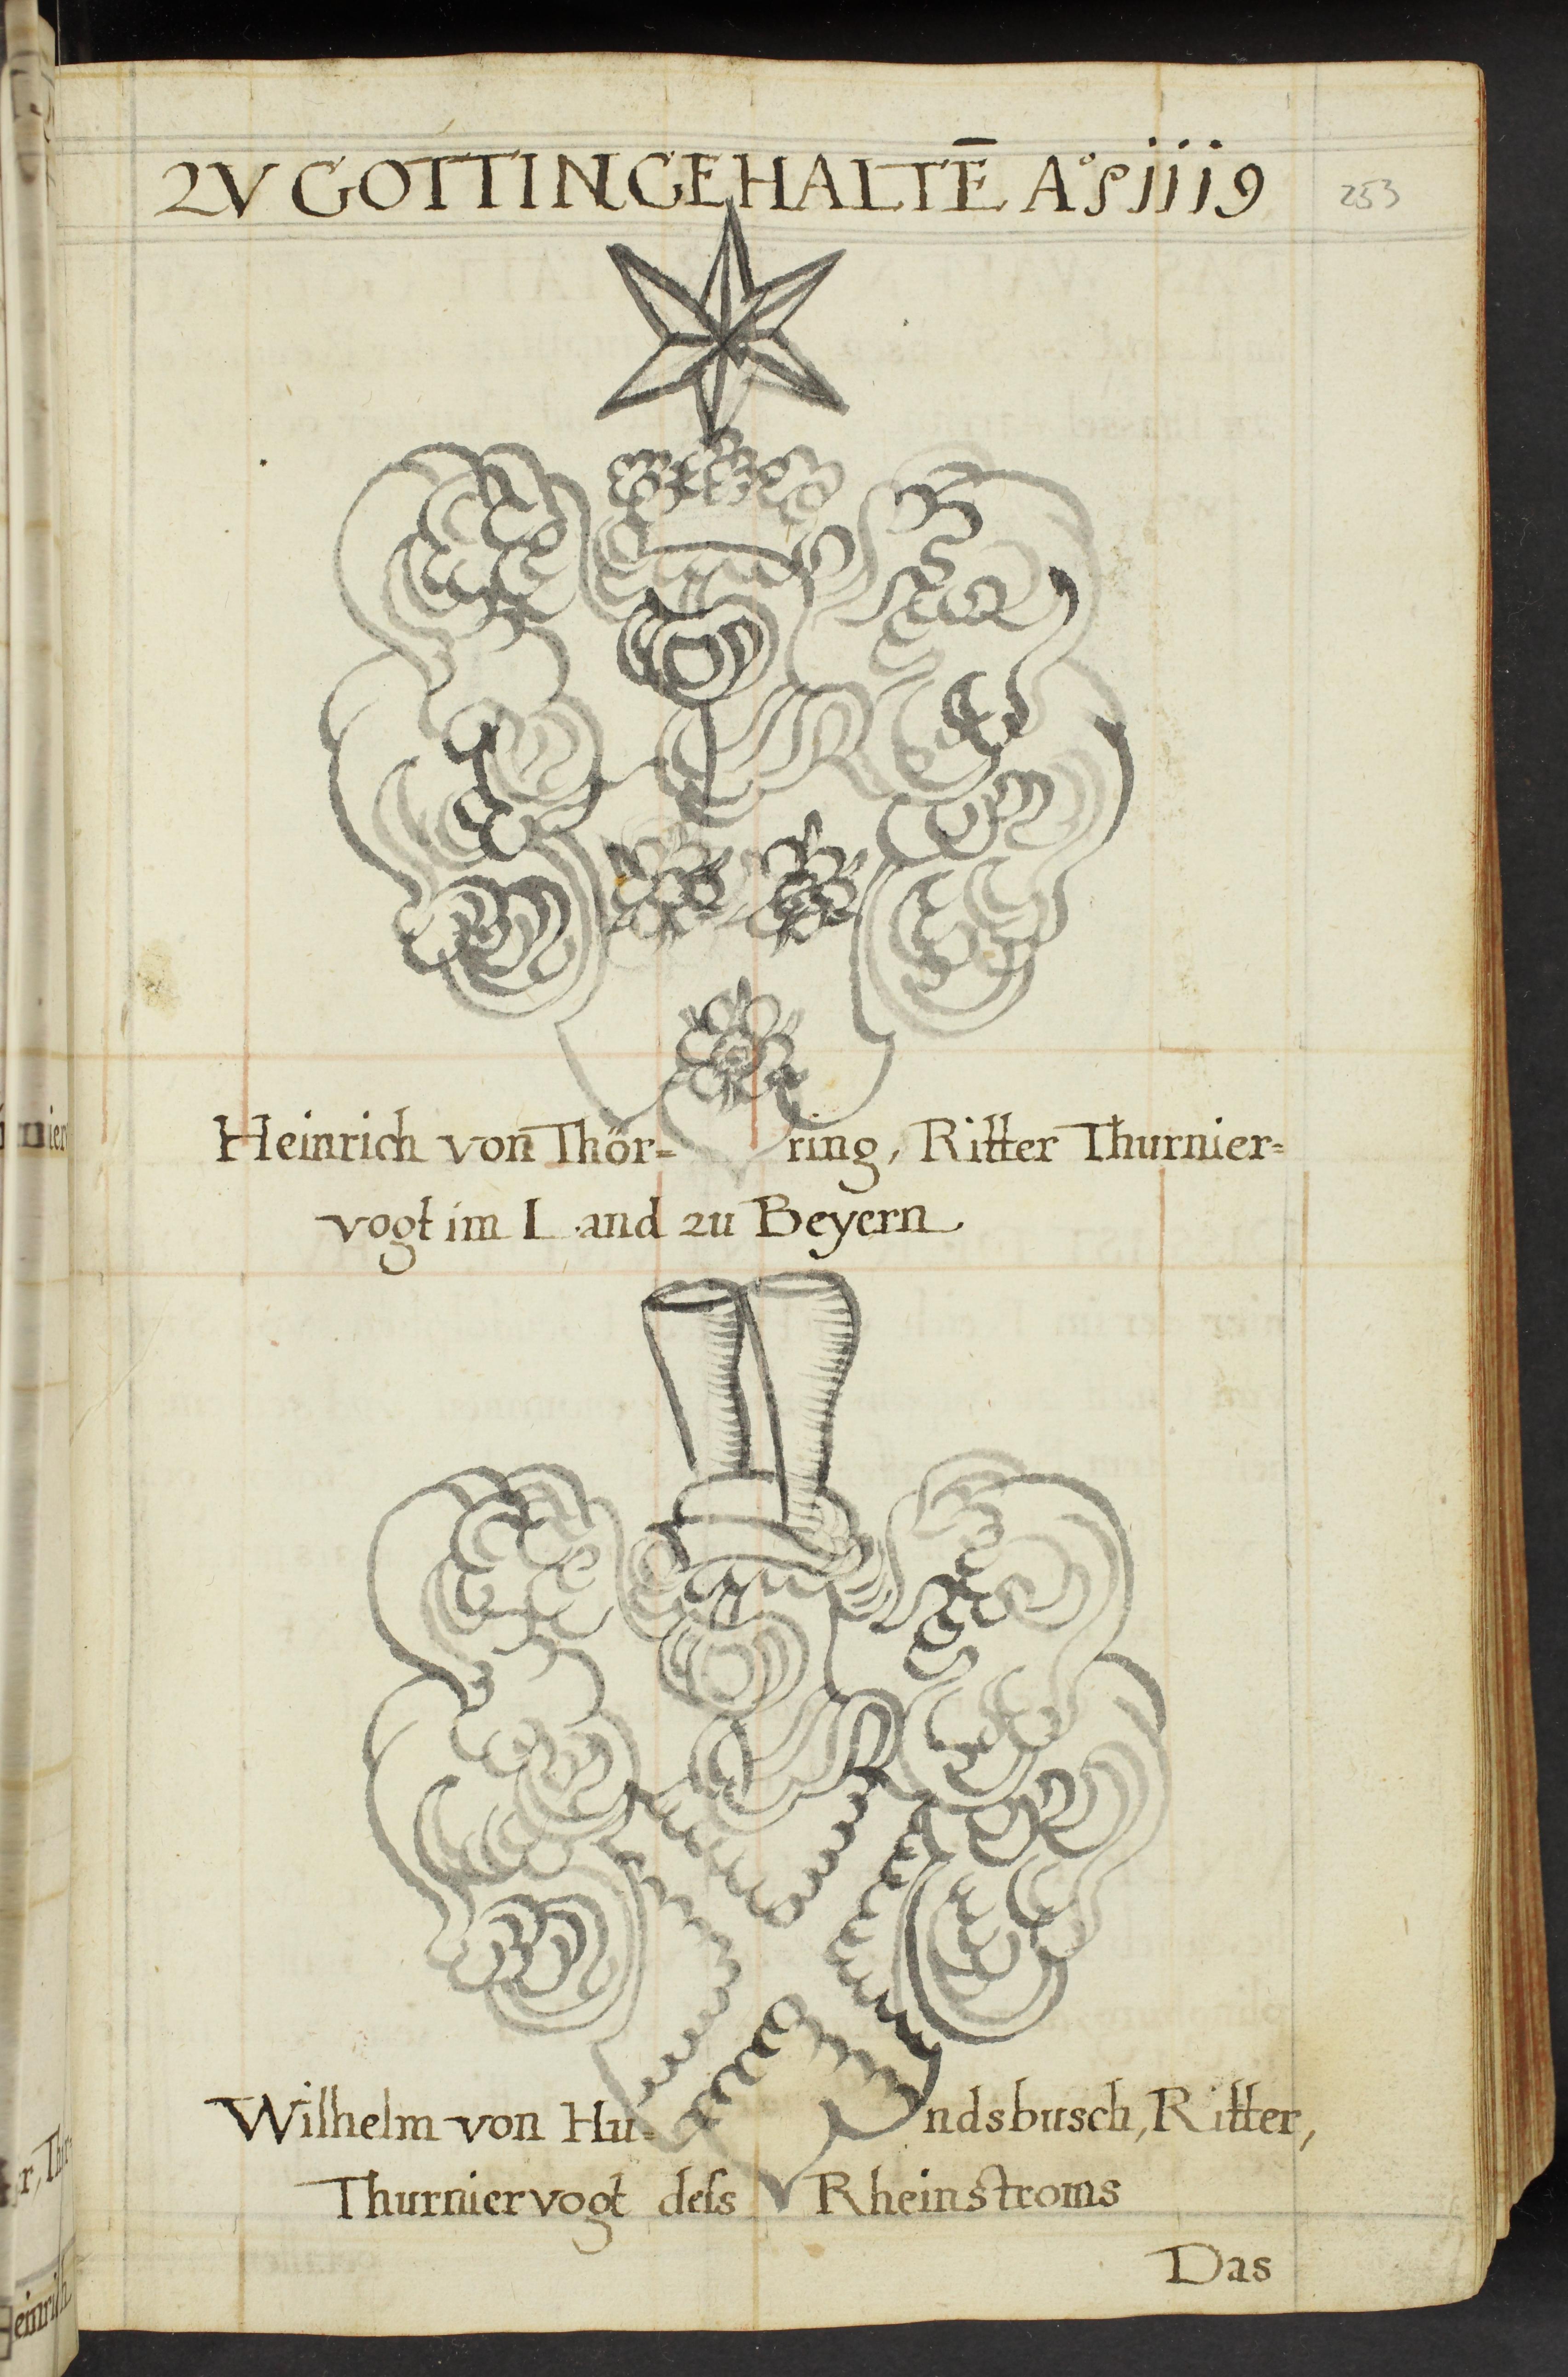 ZV GOTTINGEHALTĒ A° 1119
253
Heinrich von Thör= ring, Ritter Thurnier=
vogt im Land zu Beyern
Wilhelm von Hu= ndsbusch, Ritter,
Thurniervogt deſs Rheinstroms
Das